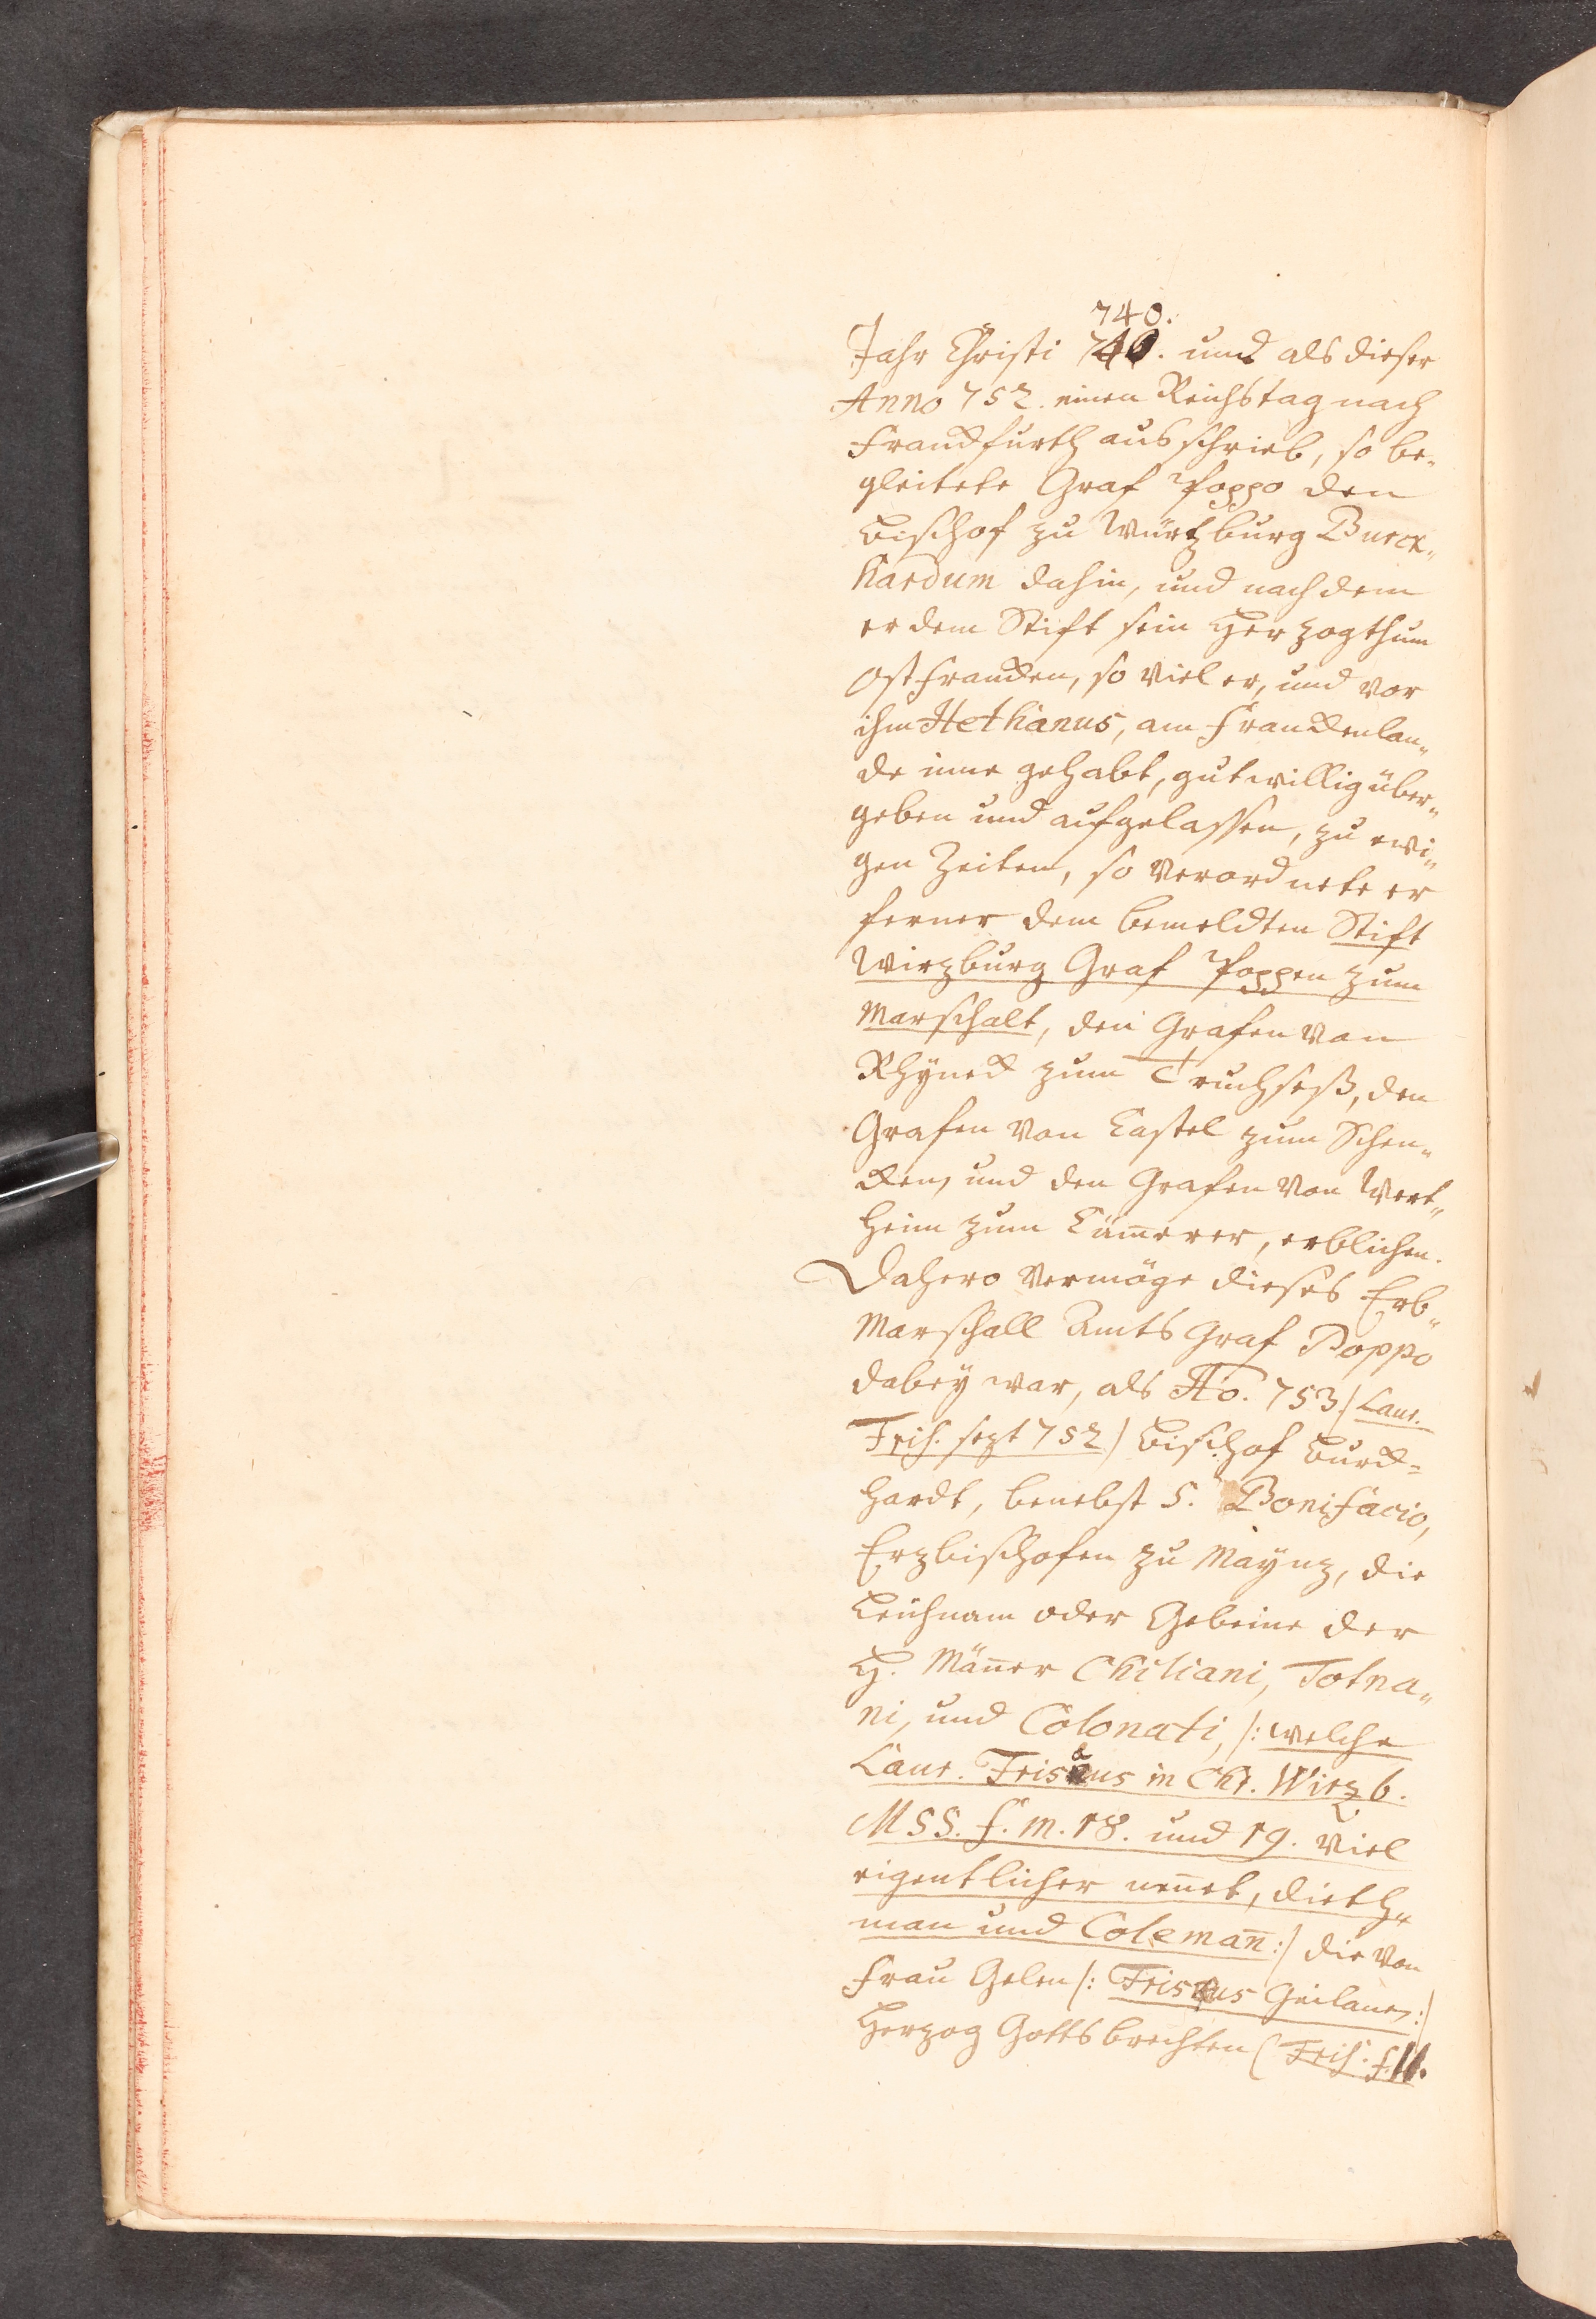 740.
Jahr Christi 740. und als dieser
Anno 752. einen Reichstag nach
Franckfurth ausschrieb, so be„
gleitete Graf Poppo den
Bischof zu Würtzburg Burck„
hardum dahin, und nachdem
er dem Stift sein Herzogthum
Ostfrancken, so viel er, und vor
ihm Hethanus, am Franckenlan„
de inne gehabt, gutwillig über„
geben und aufgelassen, zu ewi„
gen Zeiten, so verordnete er
ferner dem bemeldten Stift
Wirzburg Graf Poppen zum
Marschalt, den Grafen von
Rhyneck zum Truchseß, den
Grafen von Castel zum Schen„
cken, und den Grafen von Wert„
heim zum Cam̅erer, erblichen.
Dahero vermöge dieses Erb„
Marschall Amts Graf Poppo
dabey war, als Ao. 753 / Laur.
Fris. sezt 752 / Bischof Burck=
hardt, benebst S. Bonifacio,
Erzbischofen zu Maynz, die
Leichnam oder Gebeine der
H. Män̅er Chiliani, Totna„
ni, und Colonati, /: welche
Laur. Frisaus in Chr. Wirzb.
MSS. f. m. 18. und 19. viel
eigentlicher nen̅et, Dieth„
man und Coleman̅ :/ die von
Frau Gelen /: Frisaus Geilanen :/
Herzog Gottsbrechten ( Fris. f. 11.